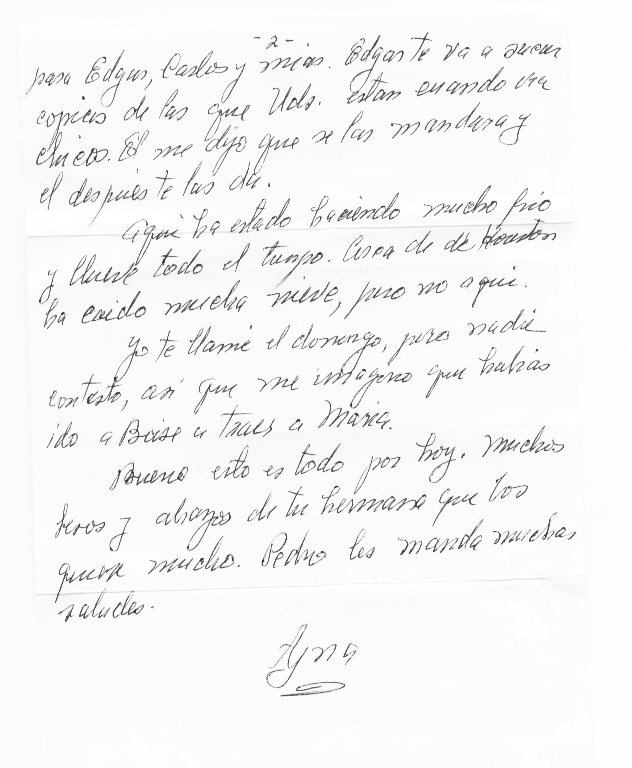 -2-
para Edgar, Carlos y mias. Edgar te va a sacar
copias de las que Uds. estan cuando era
chicos. El me dijo que se las mandara y
el despues te las da.
Aqui ha estado haciendo mucho frio
y llueve todo el tiempo. Cerca de de Houston
ha caido mucha nieve, pero no aqui.
Yo te llame el domingo, pero nadie
contesto, asi que me imagino que habias
ido a Boise a traer a Maria.
Bueno esto es todo por hoy. Muchos
besos y abazos de tu hermana que los
quiere mucho. Pedro les manda muchas
saludes.